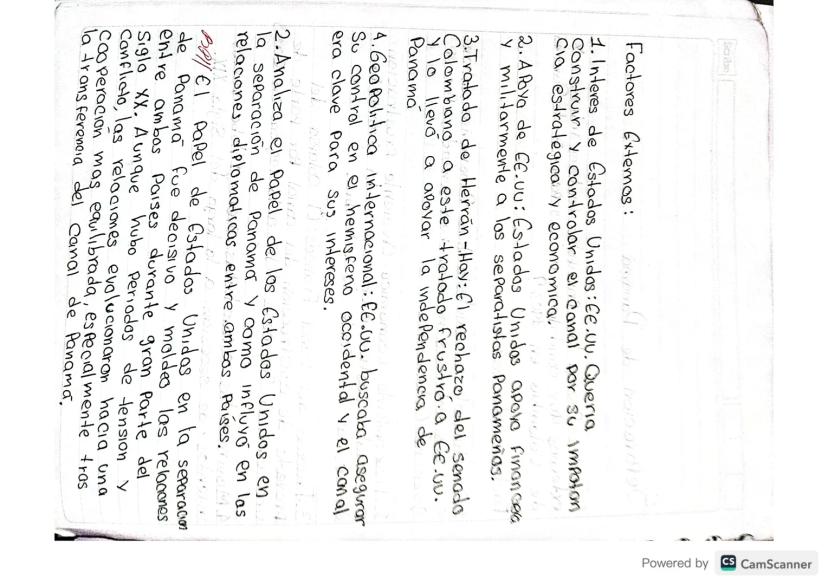 Factores Externos:
1. Interes de Estados Unidos: EE.UU. Quería
Construir y controlar el canal por su importan
cia estrategica y economica.
2. Apoyo de EE.UU: Estados Unidos apoyo financiera
y militarmente a los separatistas Panameños.
3. Tratado de Herrán-Hay: El rechazo del senado
Colombiano a este tratado frustró a EE.UU.
y lo llevó a apoyar la independencia de
Panamá
4. Geopolitica internacional: EE.UU. buscaba asegurar
su control en el hemisferio occidental y el canal
era clave para sus intereses.
2. Analiza el papel de los Estados Unidos en
la separación de Panamá y como influyó en las
relaciones diplomaticas entre ambos Paises.
R// El papel de Estados Unidos en la separacion
de Panamá fue decisivo y moldeo las relaciones
entre ambos Paises durante gran Parte del
siglo XX. Aunque hubo periodos de tension y
conflicto, las relaciones evolucionaron hacia una
cooperación mas equilibrada, especialmente tras
la transferencia del Canal de Panamá.
Powered by CS CamScanner